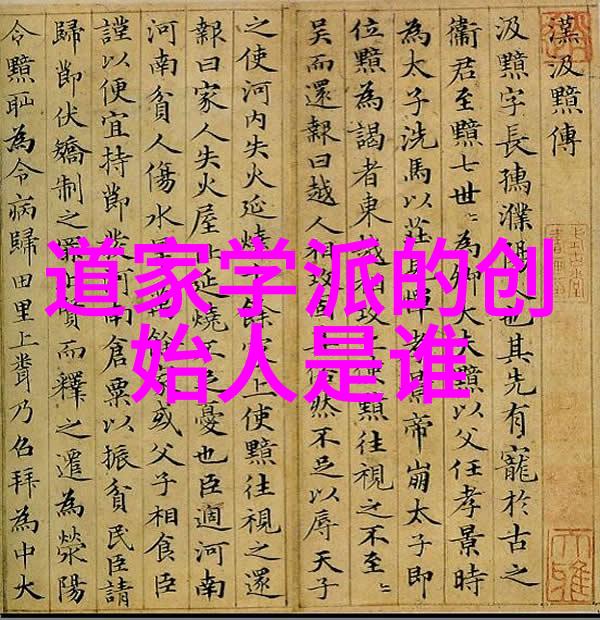 道家学派的创
始人是谁
漢汲黯傳
汲黯字長孺濮也其先有寵於古之
衞君至黯七世〻為卿大夫黯以父任孝景時
為太子洗馬以莊見憚孝景帝崩太子即
位黯為謁者東越相攻上使黯往視之不至〻
吴而還報曰越人相攻固然不足以辱天子
之使河内失火延燒餘家上使黯往視之還
報曰家人失火屋比延燒不足憂也臣適河南
河南貧人傷水旱餘家或父子相食臣
謹以便宜持節發河南倉粟以振貧民臣請
歸節伏矯制之罪上賢而釋之遷為滎陽
令黯恥為令病歸田里上聞乃召拜為中大